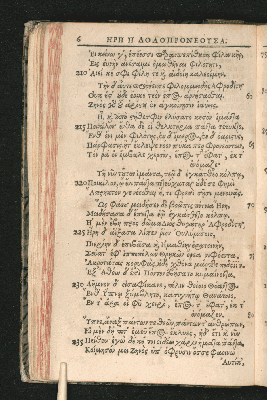 6 ΗΡΗ Η ΔΟΛΟΠΡΟΝΕΟΥΣΑ.
Εἰ κείνω γ', ἐπέεσσι παραιπεπιθοῦσα φίλον κῆρ,
Εἰς εὐνὴν ἀνέσαιμι ὁμωθῆναι φιλότητι
210 Αἰεί κε σφι φίλη τε καὶ αἰδοίη καλεοίμην.
Τὴν δ' αὖτε προσέειπε φιλομμειδὴς Ἀφροδίτη
Οὐκ ἔστ' οὐδὲ ἔοικε τεὸν ἔπος ἀρνήσασθαι,
Ζηνὸς γὰρ τοῦ ἀρίστου ἐν ἀγκοίνῃσιν ἰαύεις.
Ἦ, καὶ ἀπὸ στήθεσφιν ἐλύσατο κεστὸν ἱμάντα
215 Ποικίλον ἔνθα δέ οἱ θελκτήρια πάντα τέτυκτο,
Ἔνθ' ἔνι μὲν φιλότης, ἐν δ' ἵμερος, ἐν δ' ὀαριστὺς,
Πάρφασις ἥ τ' ἔκλεψε νόον πύκα περ φρονεόντων.
Τόν ῥά οἱ ἔμβαλε χερσὶν, ἔπος τ' ἔφατ', ἔκ τ'
ὀνόμαζε.
Τῆ νῦν τοῦτον ἱμάντα, τεῷ δ' ἐγκάτθεο κόλπῳ
220 Ποικίλον, ᾧ ἔνι πάντα τετεύχαται· οὐδέ σε φημὶ
Ἄπρηκτόν γε νέεσθαι, ὅ, τι φρεσὶ σῇσι μενοινᾷς.
Ὣς φάτο· μείδησεν δὲ βοῶπις πότνια Ἥρη,
Μειδήσασα δ' ἔπειτα ἑῷ ἐγκάτθετο κόλπῳ.
Ἡ μὲν ἔβη πρὸς δῶμα Διὸς θυγάτηρ Ἀφροδίτη,
225 Ἥρη δ' ἀΐξασα λίπεν ῥίον Οὐλύμποιο,
Πιερίην δ' ἐπιβᾶσα καὶ Ἠμαθίην ἐρατεινὴν,
Σεύατ' ἐφ' ἱπποπόλων Θρῃκῶν ὄρεα νιφόεντα,
Ἀκροτάτας κορυφὰς, οὐδὲ χθόνα μάρπτε ποδοῖιν·
Ἐξ Ἀθόω δ' ἐπὶ πόντον ἐβήσατο κυμαίνοντα,
230 Λῆμνον δ' εἰσαφίκανε, πόλιν θείοιο Θόαντος·
Ἔνθ' Ὕπνῳ ξύμβλητο, κασιγνήτῳ Θανάτοιο,
Ἔν τ' ἄρα οἱ φῦ χειρὶ, ἔπος τ' ἔφατ', ἔκ τ'
ὀνόμαζεν.
Ὕπνε, ἄναξ πάντων τε θεῶν πάντων τ' ἀνθρώπων,
Ἠ μὲν δή ποτ' ἐμὸν ἔπος ἔκλυες, ἠδ' ἔτι καὶ νῦν
235 Πείθευ· ἐγὼ δέ κέ τοι εἰδέω χάριν ἤματα πάντα.
Κοίμησόν μοι Ζηνὸς ὑπ' ὀφρύσιν ὄσσε φαεινὼ
Αὐτίκ'